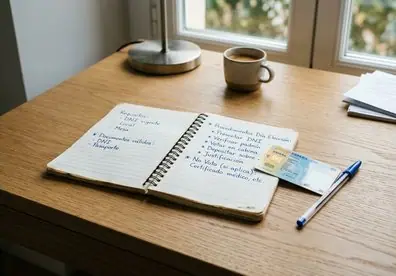 Requisitos
DNI vigente
Local
Mesa
• Documentos válidos:
- DNI
- Pasaporte
• Procedimientos Día Elección:
• Presentar DNI
• Verificar padrón
• Votar en cabina
• Depositar sobre
• Justificación
• No Vota (si aplica):
Certificado médico, etc.